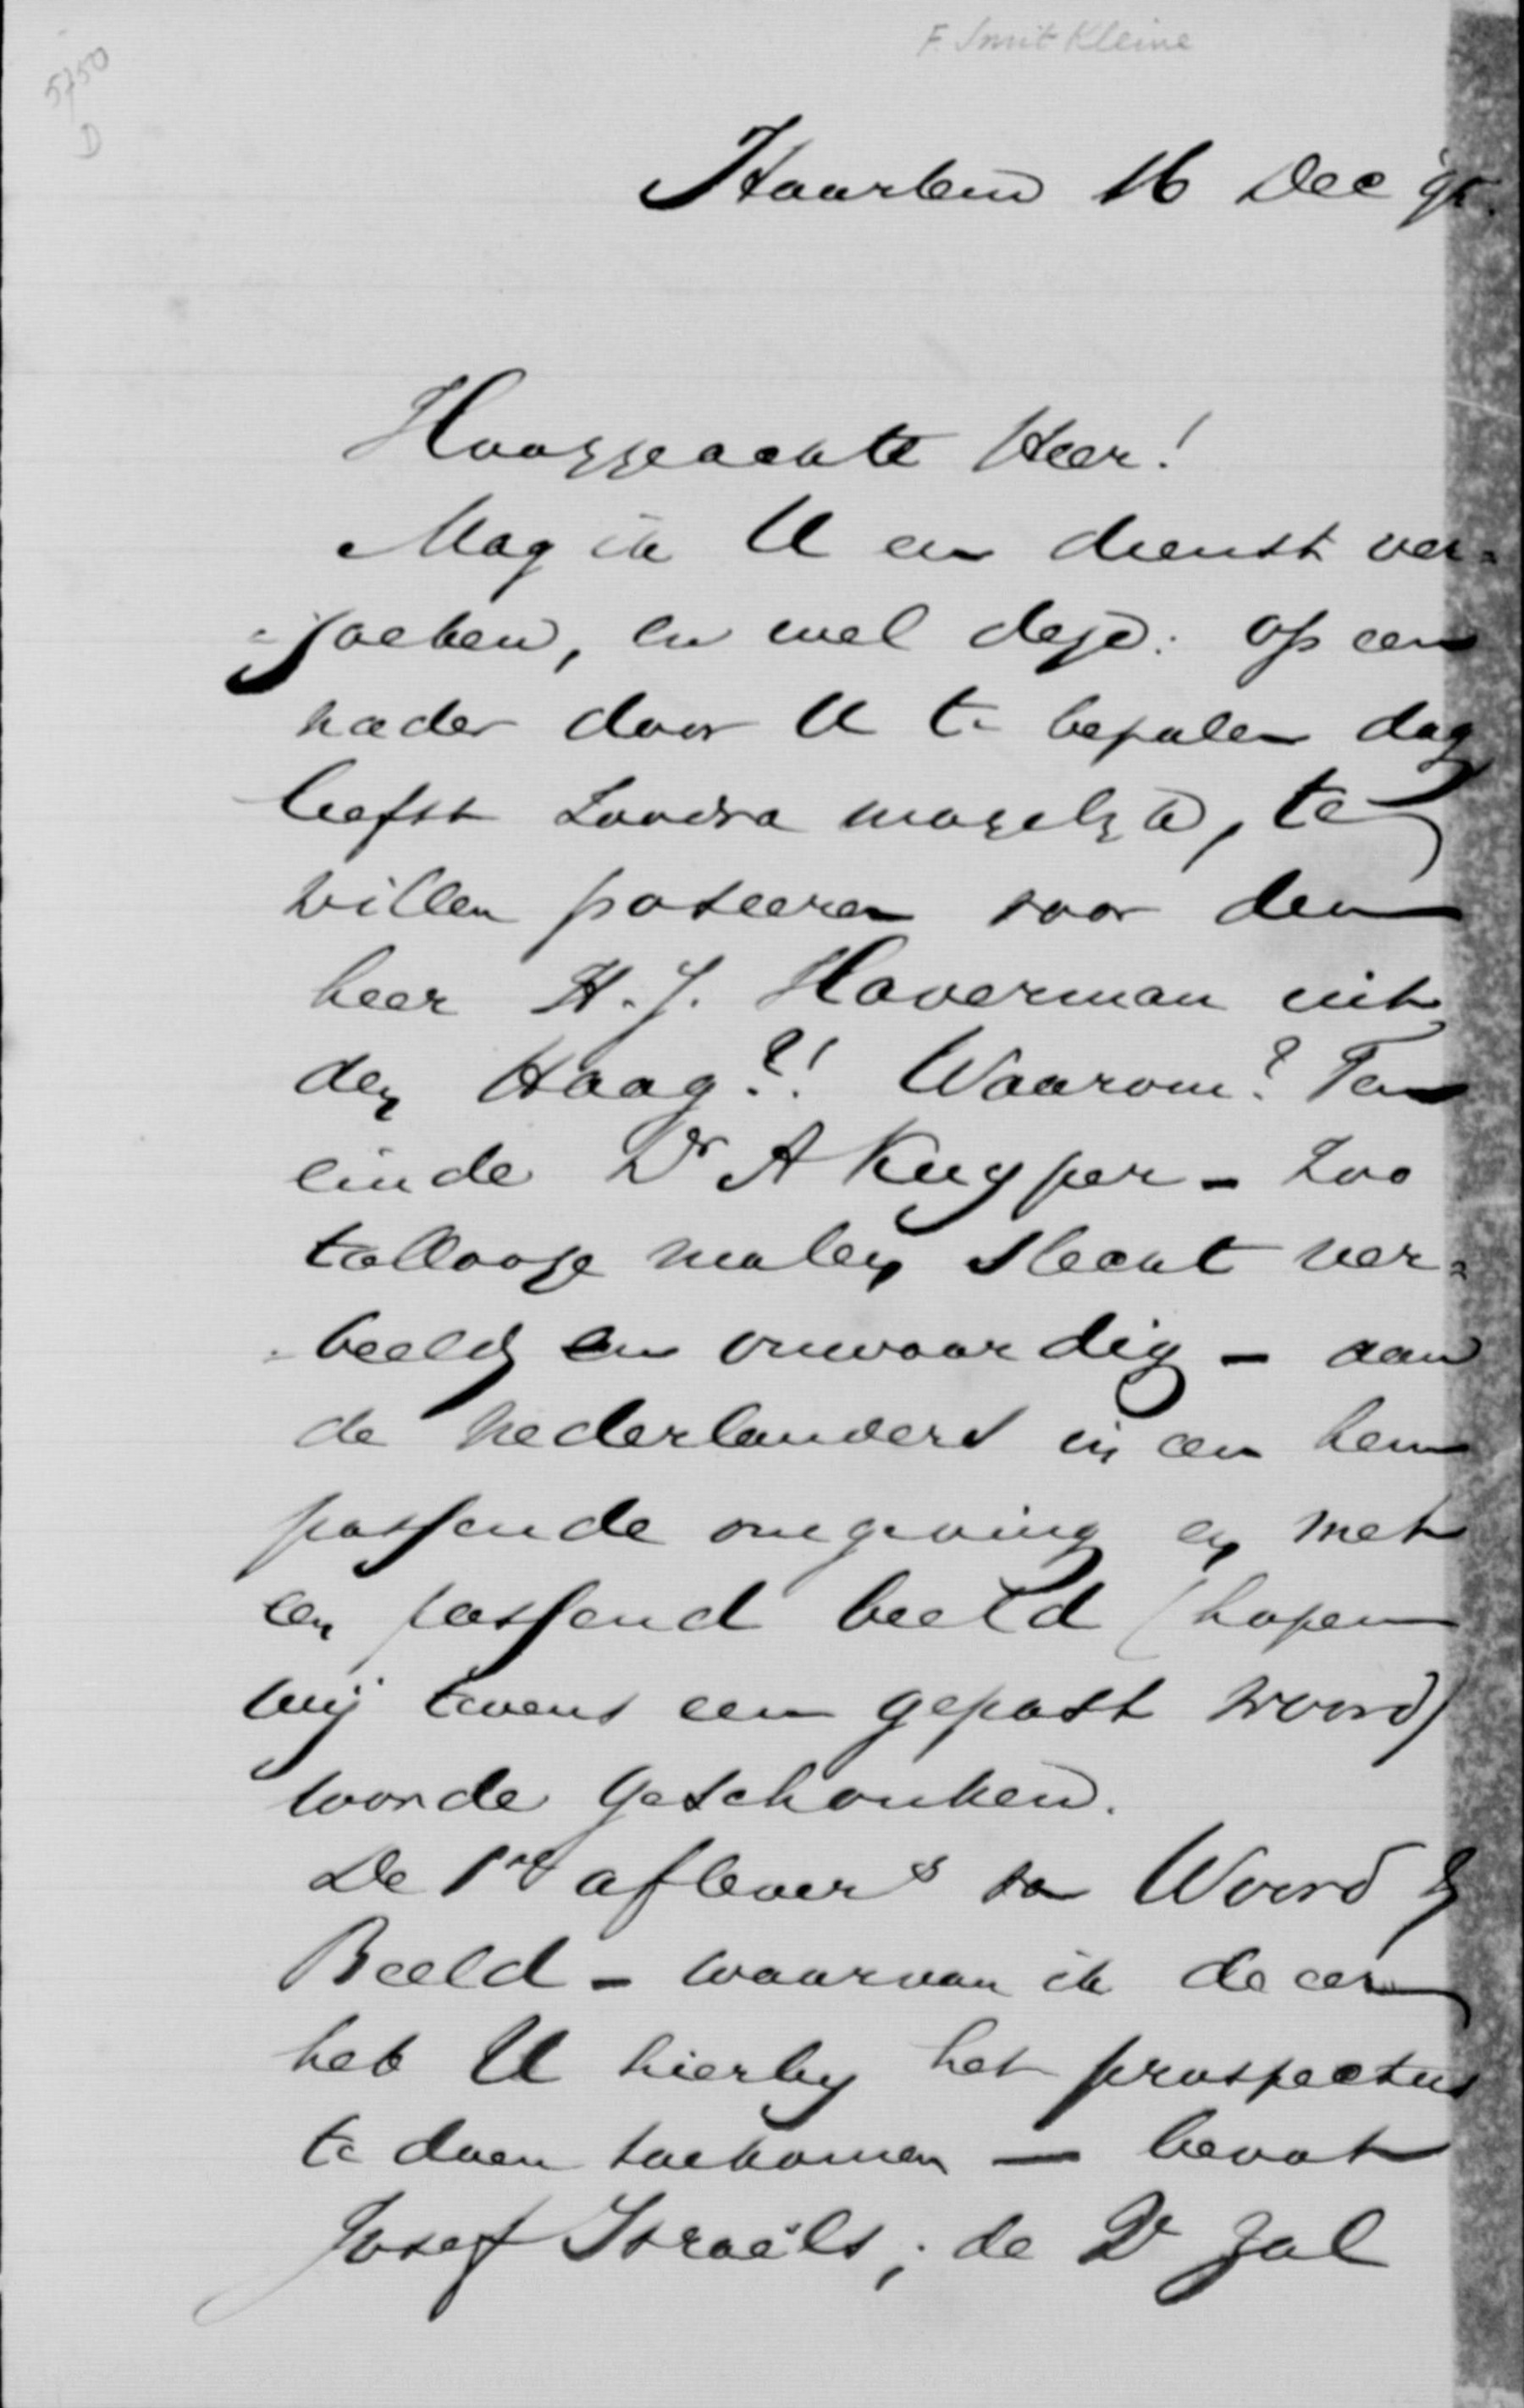 F. Smit Kleine
5750
D
Haarlem 16 Dec 95.
Hooggeachte Heer!
Mag ik U een dienst ver=
=zoeken, en wel deze: op een
nader door U te bepalen dag
liefst zoodra mogelijk, te
willen poseeren voor den
heer H. J. Haverman uit
den Haag?! Waarom? Ten
einde Dr A Kuyper - zoo
tallooze malen slecht ver=
=beeld en onwaardig - aan
de Nederlanders in een hem
passende omgeving en met
een passend beeld (hopen
wij tevens een gepast woord)
worde geschonken.
De 1ste aflevers van Woord &
Beeld - waarvan ik de eer
heb U hierby het prospectus
te doen toekomen — bevat
Josef Israëls; de 2e zal